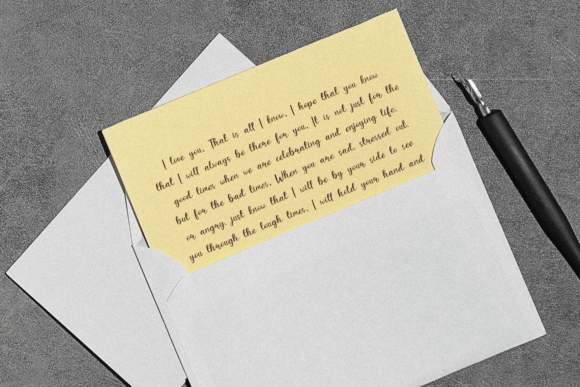 I love you. That is all I know. I hope that you know
that I will always be there for you. It is not just for the
good times when we are celebrating and enjoying life,
but for the bad times. When you are sad, stressed out,
or angry, just know that I will be by your side to see
you through the tough times. I will hold your hand and